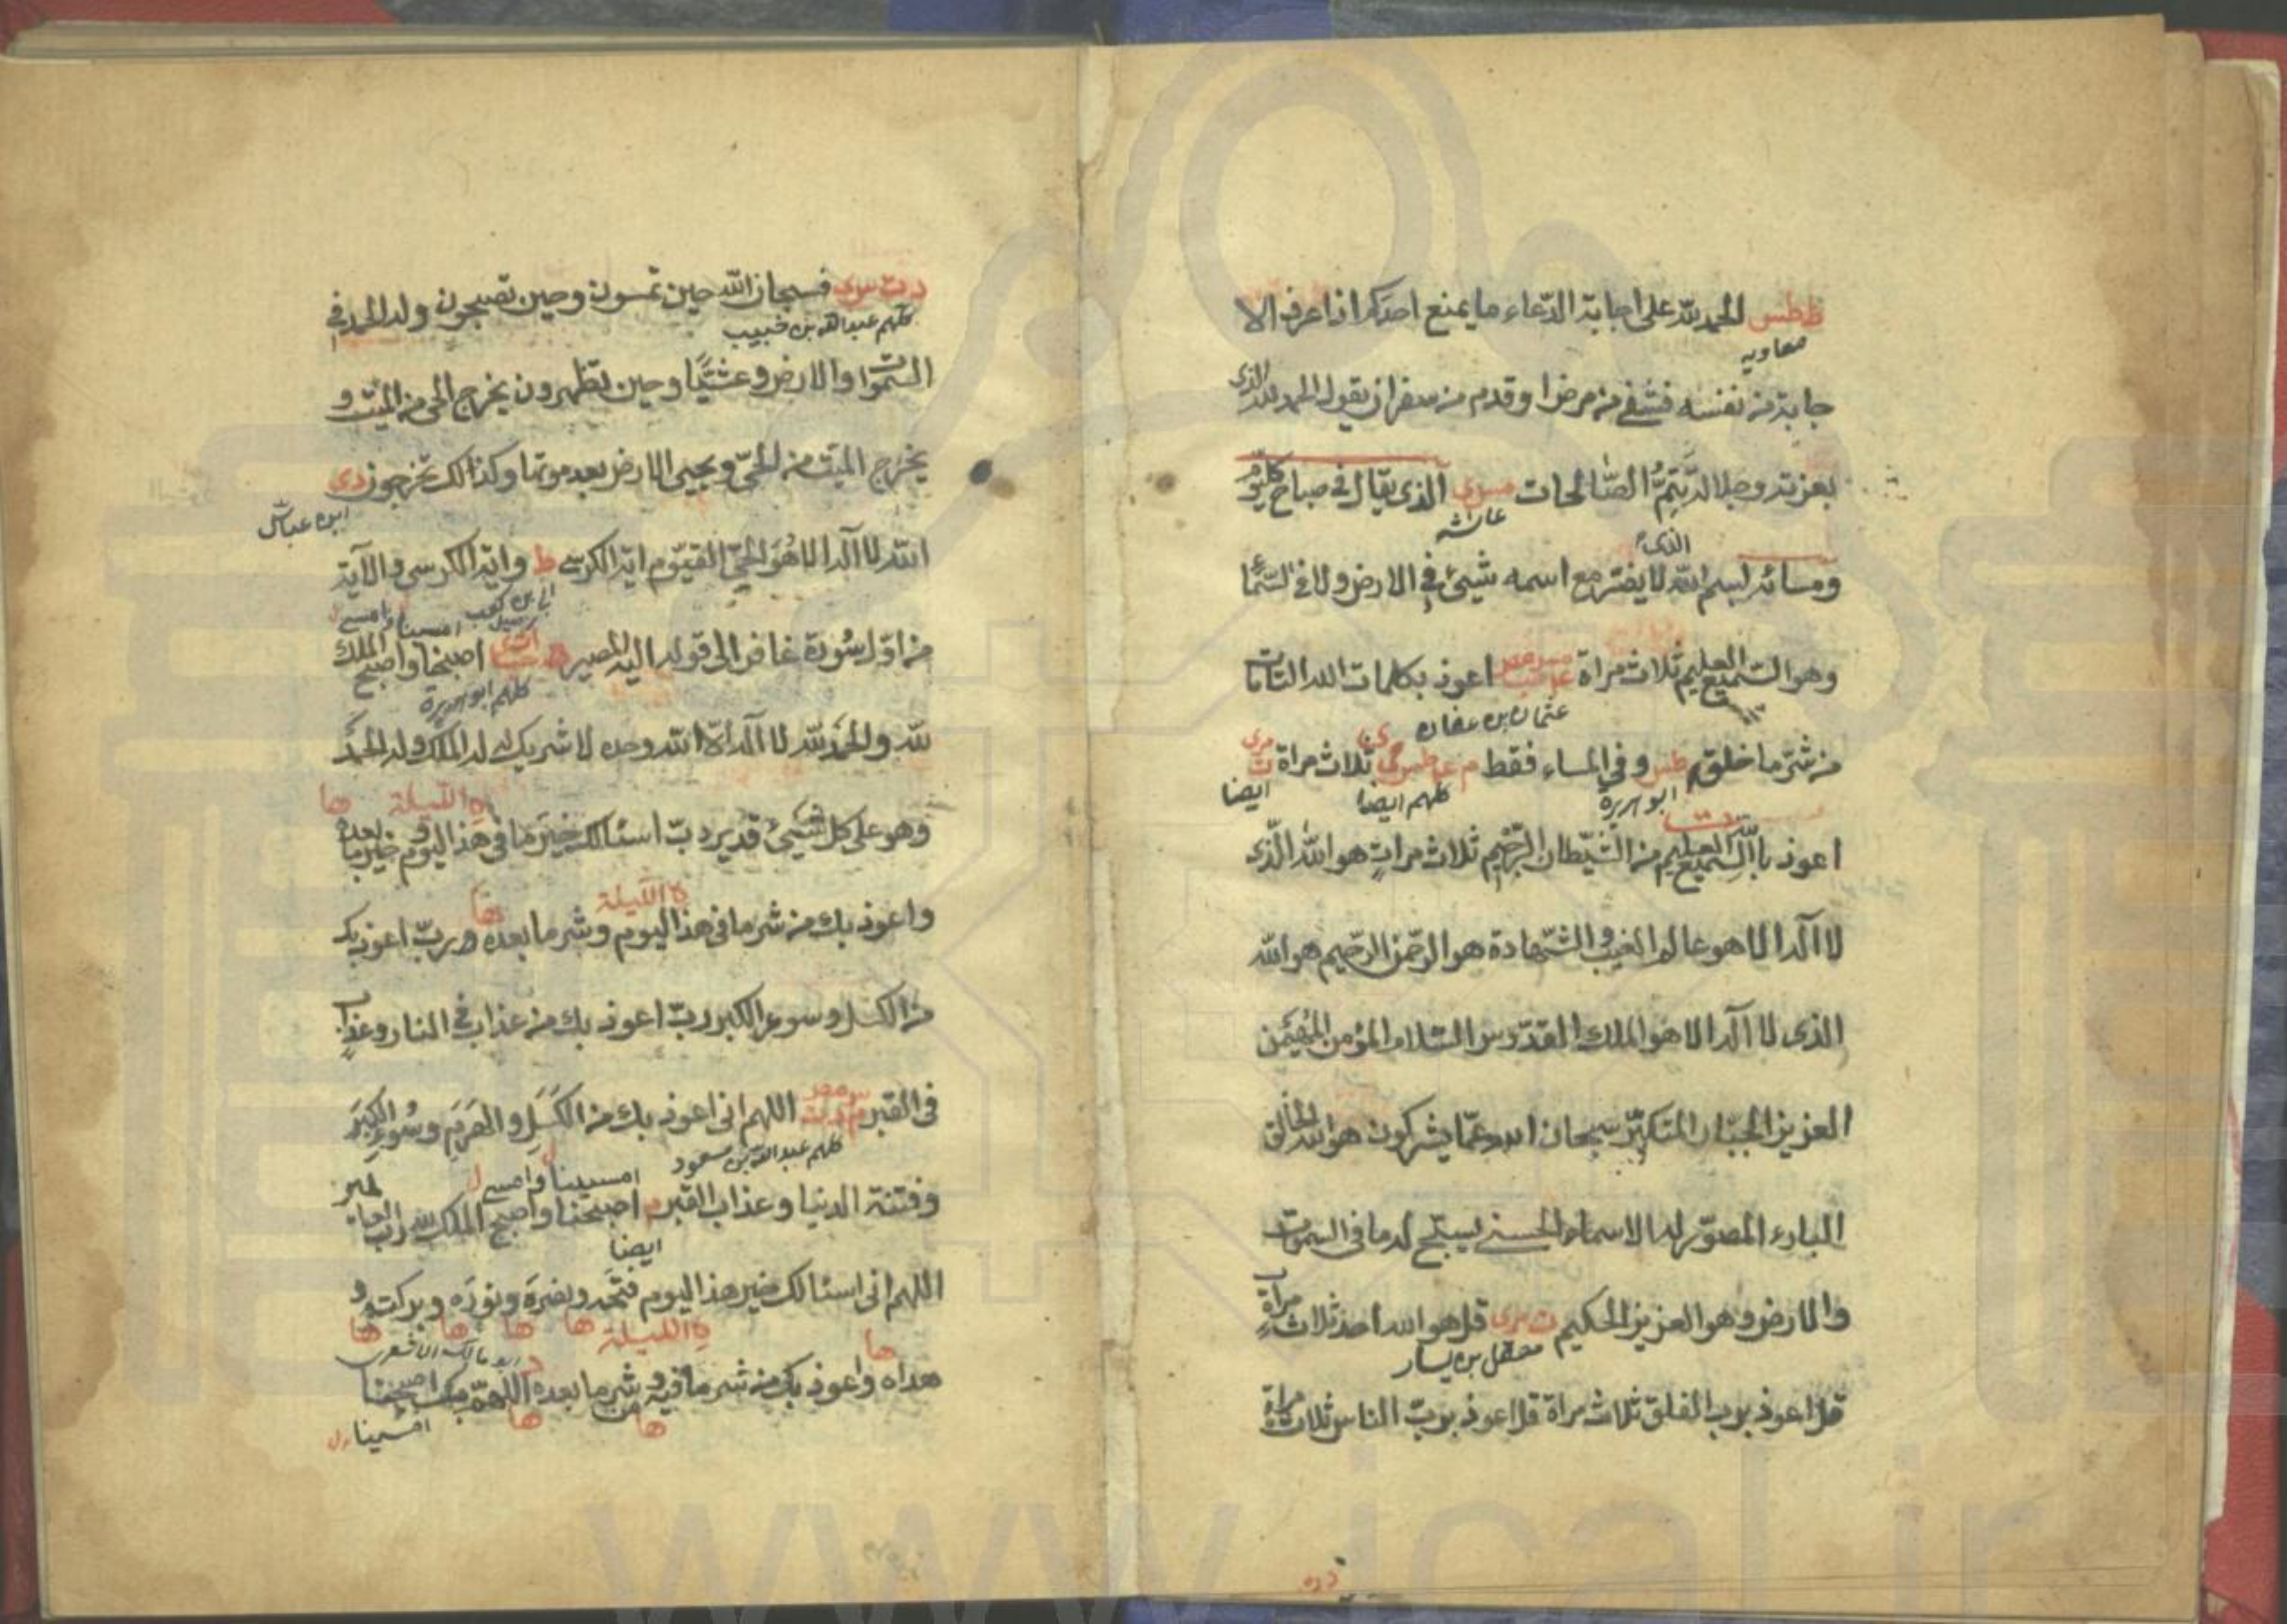 ط طس الحمد لله على اجابة الدعاء ما يمنع احدكم اذا عرف الا
معاويه
جابة من نفسه فشفى من مرض او قدم من سفر ان يقول الحمد لله الذى
بعزته وجلاله تتمّ الصّالحات مس ى الذى يقال فى صباح كل يوم
عائشه
ومسائه بسم الله الذى لا يضر مع اسمه شيئ فى الارض ولا فى السّماء
وهو السّميع العليم ثلاث مراة عه حب مس مص اعوذ بكلمات الله التامات
عثمان بن عفان
من شرّ ما خلق طس و فى المساء فقط م عه طس مى ى ثلاث مراة ت مى
ابو هريرة كلهم ايضا ايضا
اعوذ بالله السّميع العليم من الشّيطان الرّجيم ثلاث مراتٍ هو الله الّذى
لا اله الا هو عالم الغيب و الشّهادة هو الرّحمن الرّحيم هو الله
الذى لا اله الا هو الملك القدّوس السّلام المؤمن المُهَيمَن
العزيز الجبّار المتكبّر سبحان الله عمّا يشركون هو الله الخالق
البارء المصوّر له الاسماء الحسنى يسبّح له ما فى السموت
والارض و هو العزيز الحكيم ت مى قل هو الله احد ثلاث مراةٍ
معقل بن يسار
قل اعوذ برب الفلق ثلاث مراة قل اعوذ بربّ الناس ثلاث مراة
د ت س ى فسبحان الله حين تمسون و حين تصبحون وله الحمد فى
كلهم عبد الله بن خبيب
السّموات والارض و عشيًّا و حين تظهرون يخرج الحى من الميّت و
يخرج الميّت من الحىّ و يحيى الارض بعد موتها و كذالك تخرجون د ى
ابن عباس
الله لا اله الا هُوَ الحىّ القيّوم اية الكرسى ط و اية الكرسى و الآية
ابى بن كعب
امسينا و امسى ل
من اوّل سُورة غافر الى قوله اليه المصير حب ت ى اصبحنا و اصبح الملك
كلهم ابو هريرة
للّه و الحمَدُ للّه لا اله الاّ الله وحده لا شريك له له الملك و له الحمدُ
ه الليلة ها
و هو على كل شيئ قدير ربّ اسئالك خيَر ما فى هذا اليوم و خير ما بعده
ه الليلة ها
و اعوذ بك من شر ما فى هذا اليوم و شر ما بعده و ربّ اعوذ بك
من الكسل و سوء الكبر ربّ اعوذ بك من عذاب فى النار و عذاب
فى القبر م د ت س مص اللهم انى اعوذ بك من الكَسَلِ و الهَرَمِ و سُوءِ الكِبَرِ
كلهم عبد الله بن مسعود
امسينا و امسى ل
و فتنة الدنيا و عذاب القبر م اصبحنا و اصبح الملك لله ربّ
ايضا
اللهم انى اسئالك خير هذا اليوم فتحَه و نصَره و نورَه و بركته و
ه الليلة ها ها ها ها
ابو مالك الاشعرى
ها
هداه و اعوذ بك من شر ما فيه و شر ما بعده د اللهمّ بك اصبحنا
ها من ها
امسينا ل
www.ical.ir